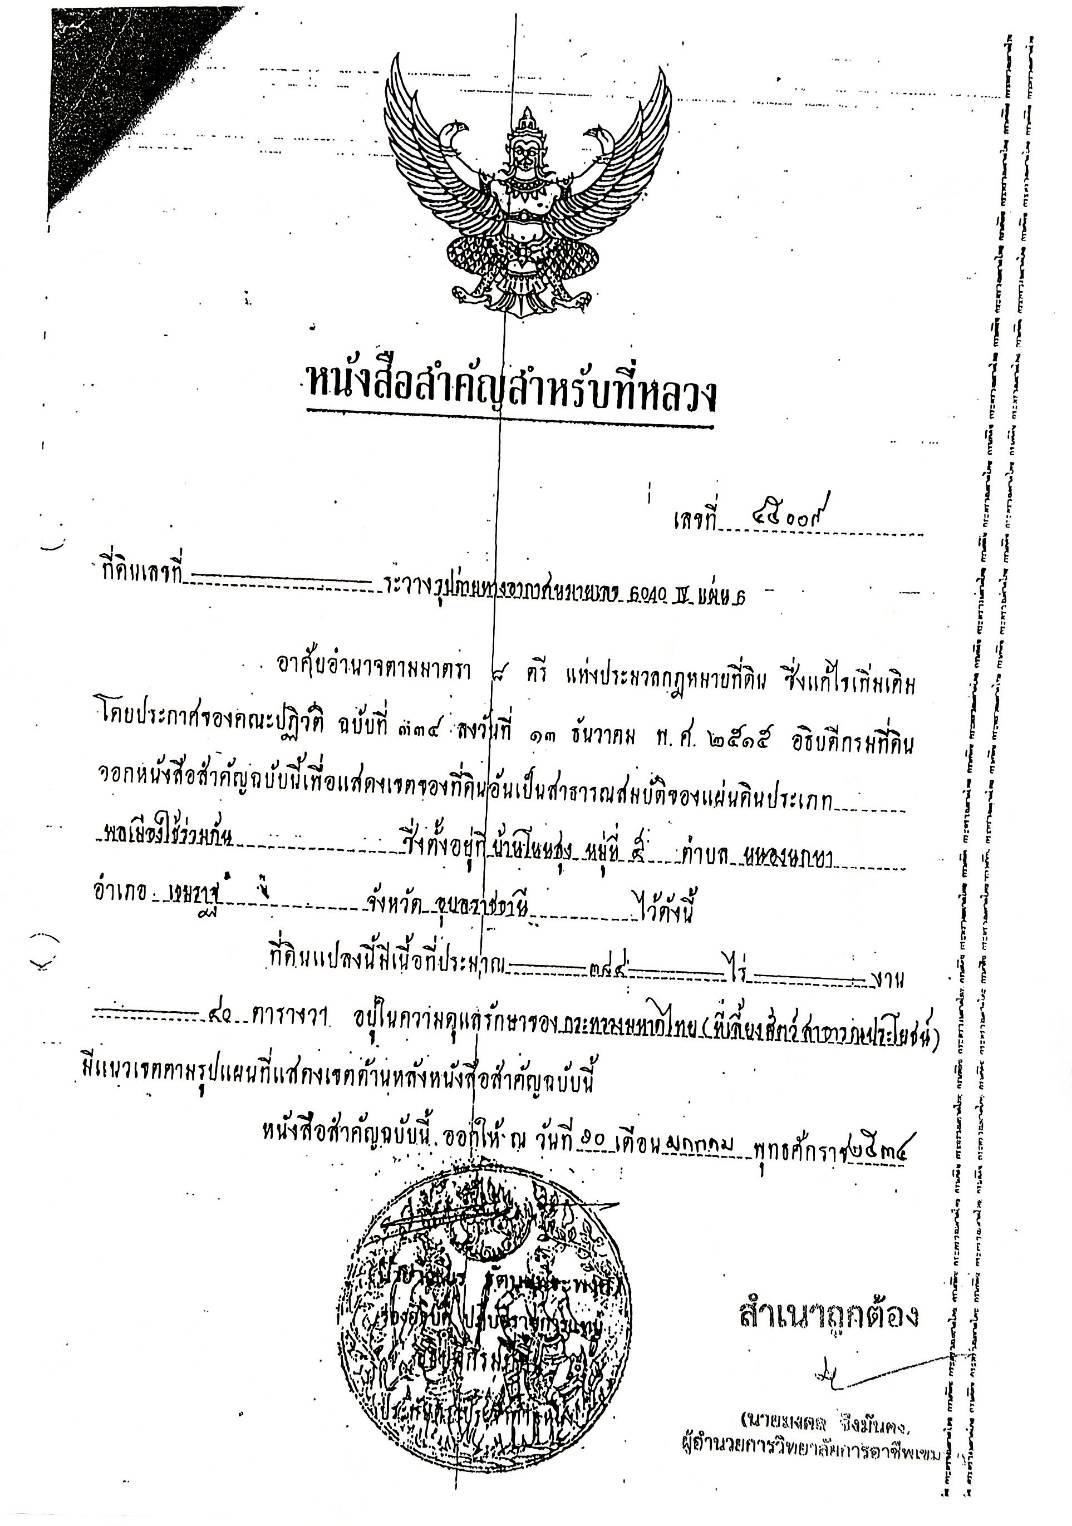 หนังสือสำคัญสำหรับที่หลวง
เลขที่ ๔๕๐๐๙
ที่ดินเลขที่ ระวางรูปถ่ายทางอากาศหมายเลข IV แผ่น ๖
อาศัยอำนาจตามมาตรา ๘ ตรี แห่งประมวลกฎหมายที่ดิน ซึ่งแก้ไขเพิ่มเติม
โดยประกาศของคณะปฏิวัติ ฉบับที่ ๓๓๔ ลงวันที่ ๑๓ ธันวาคม พ.ศ. ๒๕๑๕ อธิบดีกรมที่ดิน
ออกหนังสือสำคัญฉบับนี้เพื่อแสดงเขตของที่ดินอันเป็นสาธารณสมบัติของแผ่นดินประเภท
พลเมืองใช้ร่วมกัน ซึ่งตั้งอยู่ที่ บ้านโนนสูง หมู่ที่ ๕ ตำบล หนองนกทา
อำเภอ เขมราฐ จังหวัด อุบลราชธานี ไว้ดังนี้
ที่ดินแปลงนี้มีเนื้อที่ประมาณ ๓๘๘ ไร่ งาน
๔๐ ตารางวา อยู่ในความดูแลรักษาของ กระทรวงมหาดไทย (ที่เลี้ยงสัตว์สาธารณประโยชน์)
มีแนวเขตตามรูปแผนที่แสดงเขตด้านหลังหนังสือสำคัญฉบับนี้
หนังสือสำคัญฉบับนี้ ออกให้ ณ วันที่ ๑๐ เดือน มกราคม พุทธศักราช ๒๕๓๔
รองอธิบดี ปฏิบัติราชการแทน
อธิบดีกรมที่ดิน
สำเนาถูกต้อง
(นายมงคล จึงมั่นคง
ผู้อำนวยการวิทยาลัยการอาชีพเขม